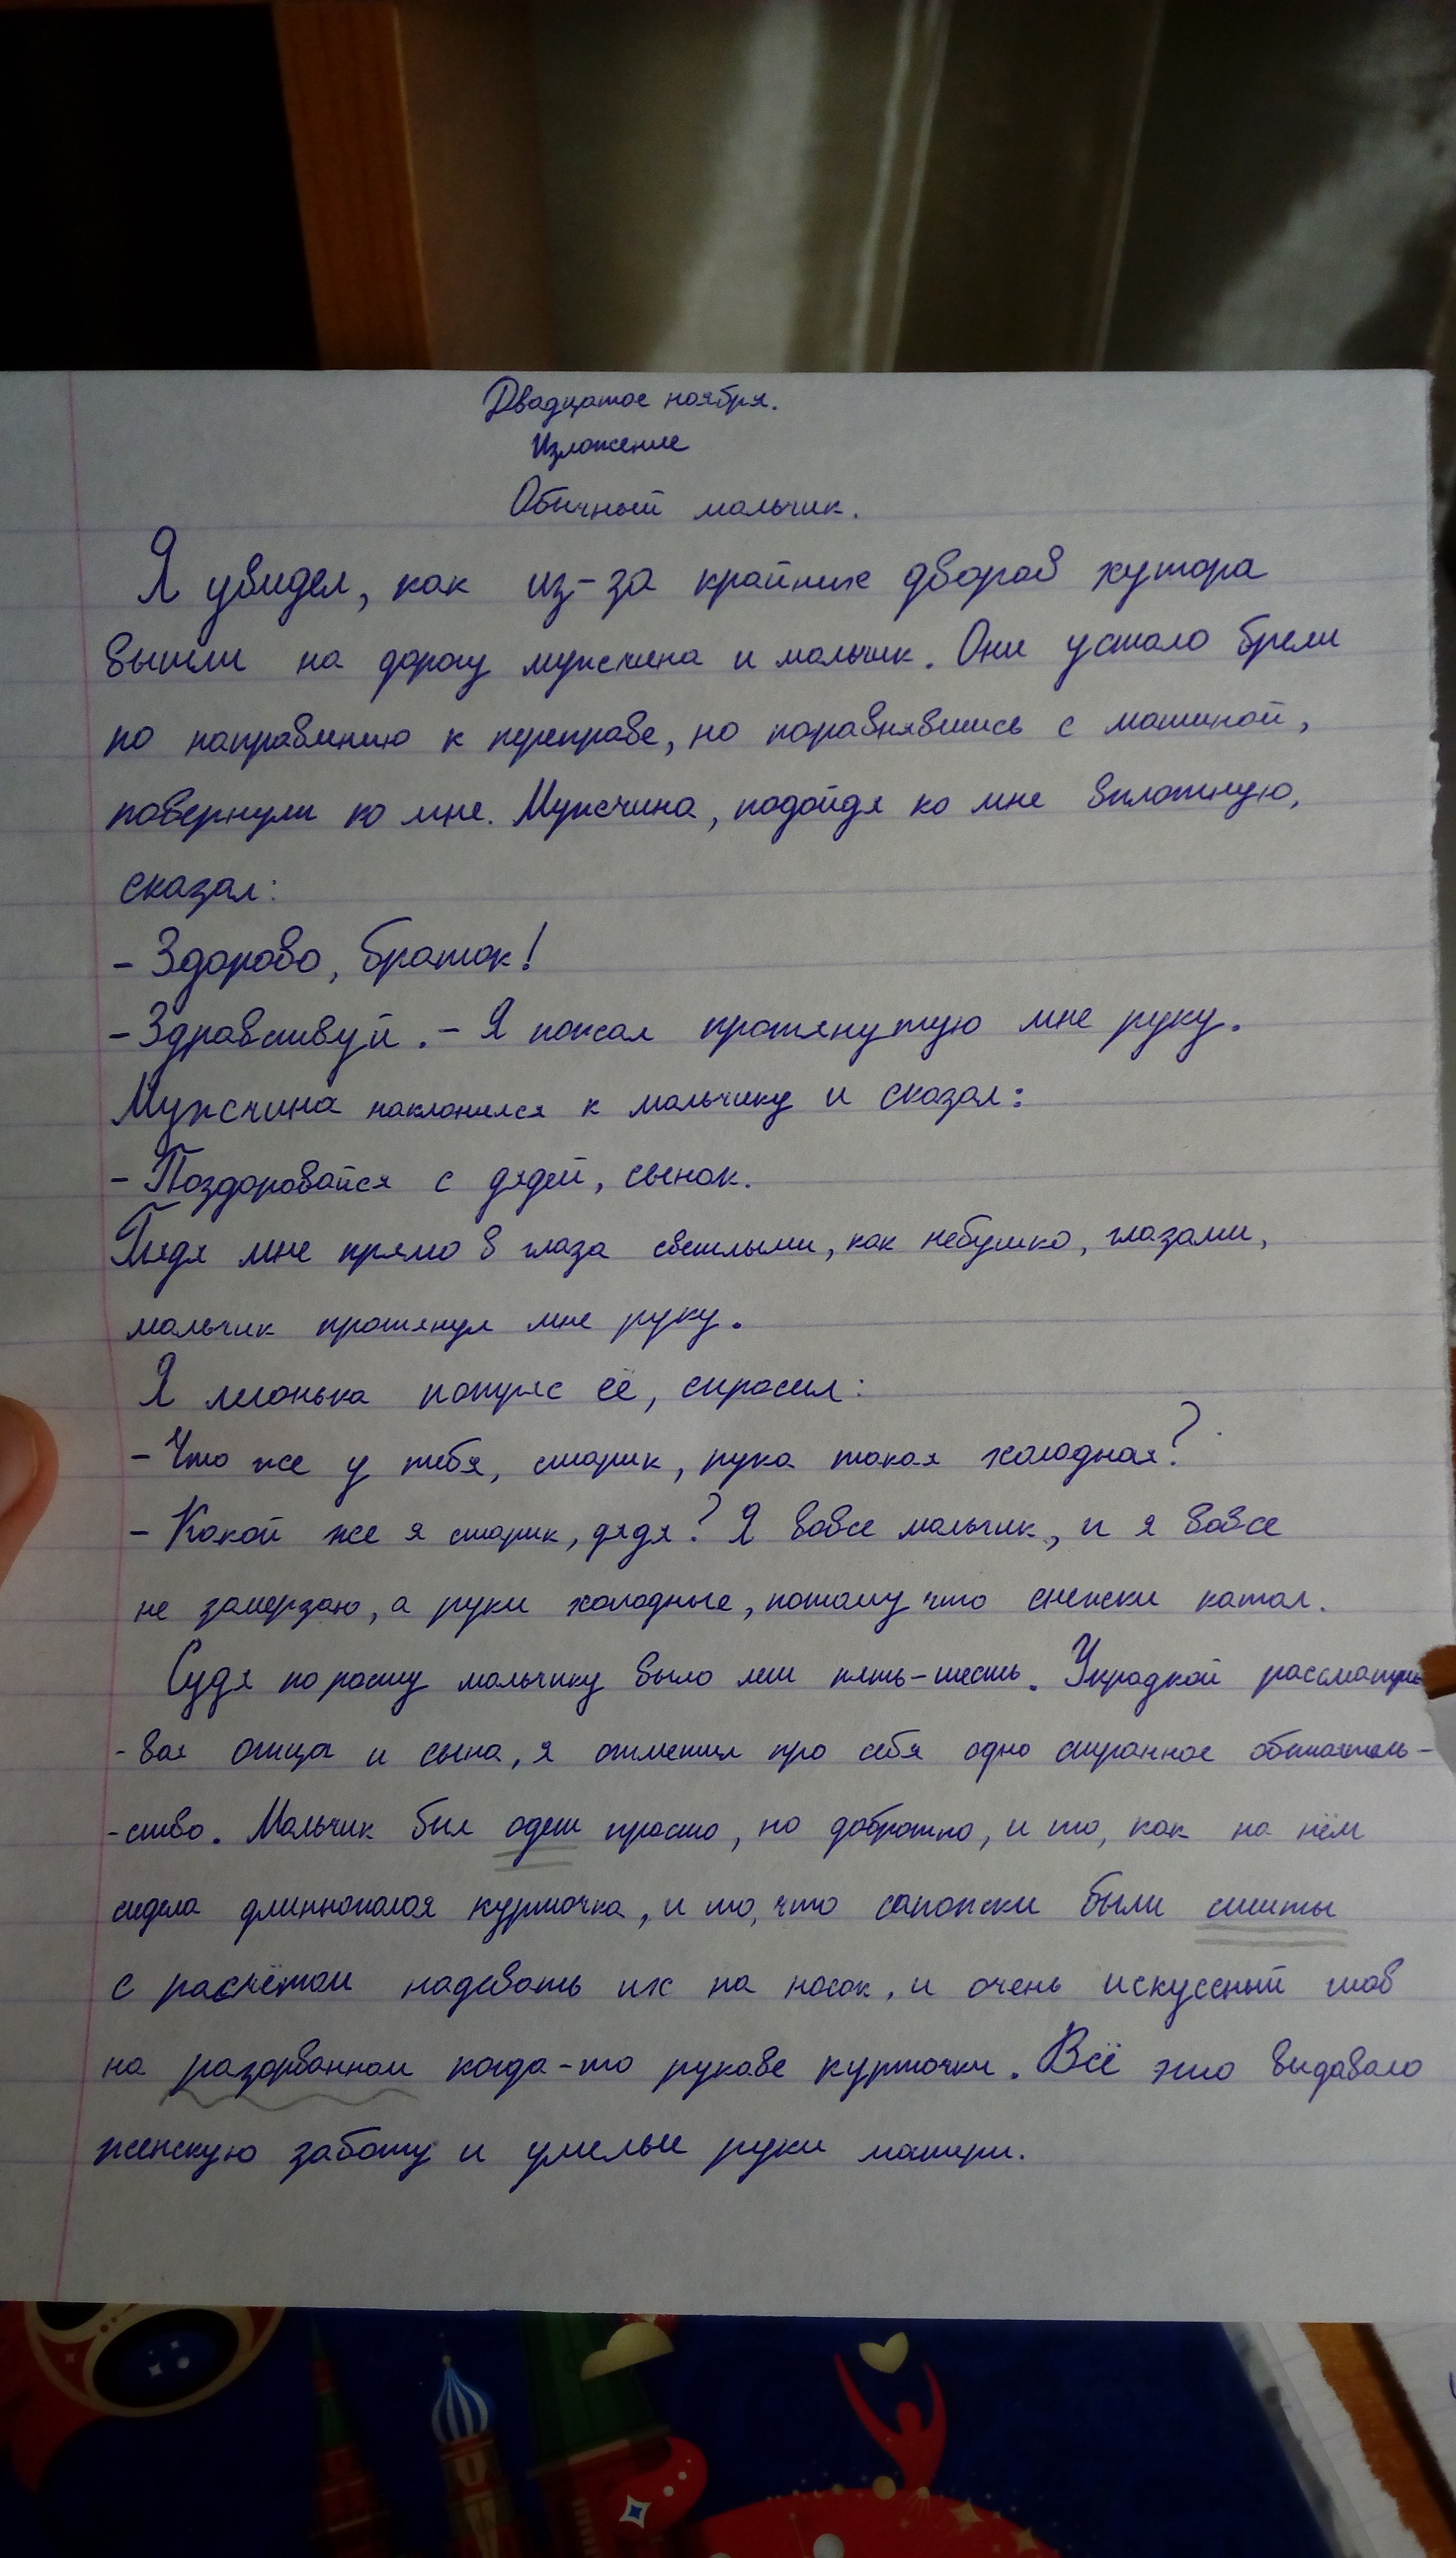 Двадцатое ноября.
Изложение
Обычный мальчик.
Я увидел, как из-за крайних дворов хутора
вышли на дорогу мужчина и мальчик. Они устало брели
по направлению к переправе, но поравнявшись с машиной,
повернули ко мне. Мужчина, подойдя ко мне вплотную,
сказал:
- Здорово, браток!
- Здравствуй. - Я пожал протянутую мне руку.
Мужчина наклонился к мальчику и сказал:
- Поздоровайся с дядей, сынок.
Глядя мне прямо в глаза светлыми, как небушко, глазами,
мальчик протянул мне руку.
Я легонько потряс её, спросил:
- Что же у тебя, старик, рука такая холодная?
- Какой же я старик, дядя? Я вовсе мальчик, и я вовсе
не замерзаю, а руки холодные, потому что снежки катал.
Судя по росту мальчику было лет пять-шесть. Украдкой рассматри
-вая отца и сына, я отметил про себя одно странное обстоятель-
-ство. Мальчик был одет просто, но добротно, и то, как на нём
сидела длиннополая курточка, и то, что сапожки были сшиты
с расчётом надевать их на носок, и очень искуссный шов
на разорванном когда-то рукаве курточки. Всё это выдавало
женскую заботу и умелые руки матери.